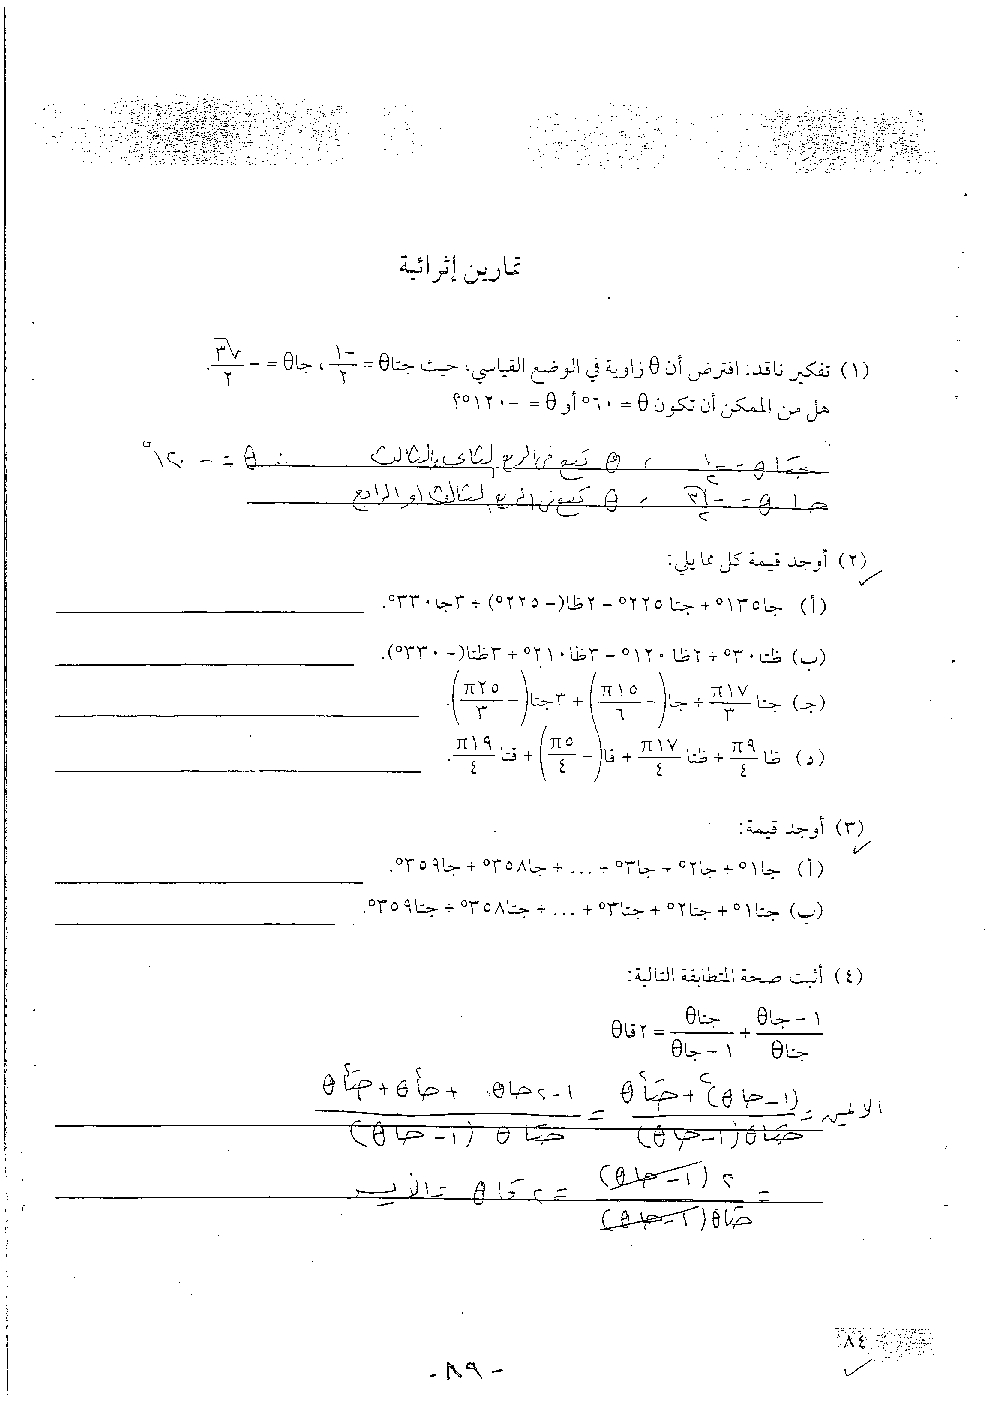 تمارين إثرائية
(١) تفكير ناقد: افترض أن θ زاوية في الوضع القياسي، حيث جتاθ = -١/٢ ، جاθ = -√٣/٢.
هل من الممكن أن تكون θ = ٦٠° أو θ = -١٢٠°؟
جتاθ = -١/٢ ، θ تقع في الربع الثاني والثالث ∴ θ = -١٢٠°
جاθ = -√٣/٢ ، θ تقع في الربع الثالث أو الرابع
(٢) أوجد قيمة كل مما يلي:
(أ) جا١٣٥° + جتا٢٢٥° - ٢ظا(-٢٢٥°) + ٣جا٣٣٠°.
(ب) ظتا٣٠° + ٢ظا١٢٠° - ٣ظا٢١٠° + ٣ظتا(-٣٣٠°).
(جـ) جتا ١٧π/٣ + جا(-١٥π/٦) + ٣جتا(-٢٥π/٣).
(د) ظا ٩π/٤ + ظتا ١٧π/٤ + قا(-٥π/٤) + قتا ١٩π/٤.
(٣) أوجد قيمة:
(أ) جا١° + جا٢° + جا٣° + ... + جا٣٥٨° + جا٣٥٩°.
(ب) جتا١° + جتا٢° + جتا٣° + ... + جتا٣٥٨° + جتا٣٥٩°.
(٤) أثبت صحة المتطابقة التالية:
(١ - جاθ)/جتاθ + جتاθ/(١ - جاθ) = ٢قاθ
الأيمن = ((١ - جاθ)² + جتا²θ)/(جتاθ(١ - جاθ)) = (١ - ٢جاθ + جا²θ + جتا²θ)/(جتاθ(١ - جاθ))
= ٢(١ - جاθ)/(جتاθ(١ - جاθ)) = ٢قاθ = الأيسر
٨٤
-٨٩-